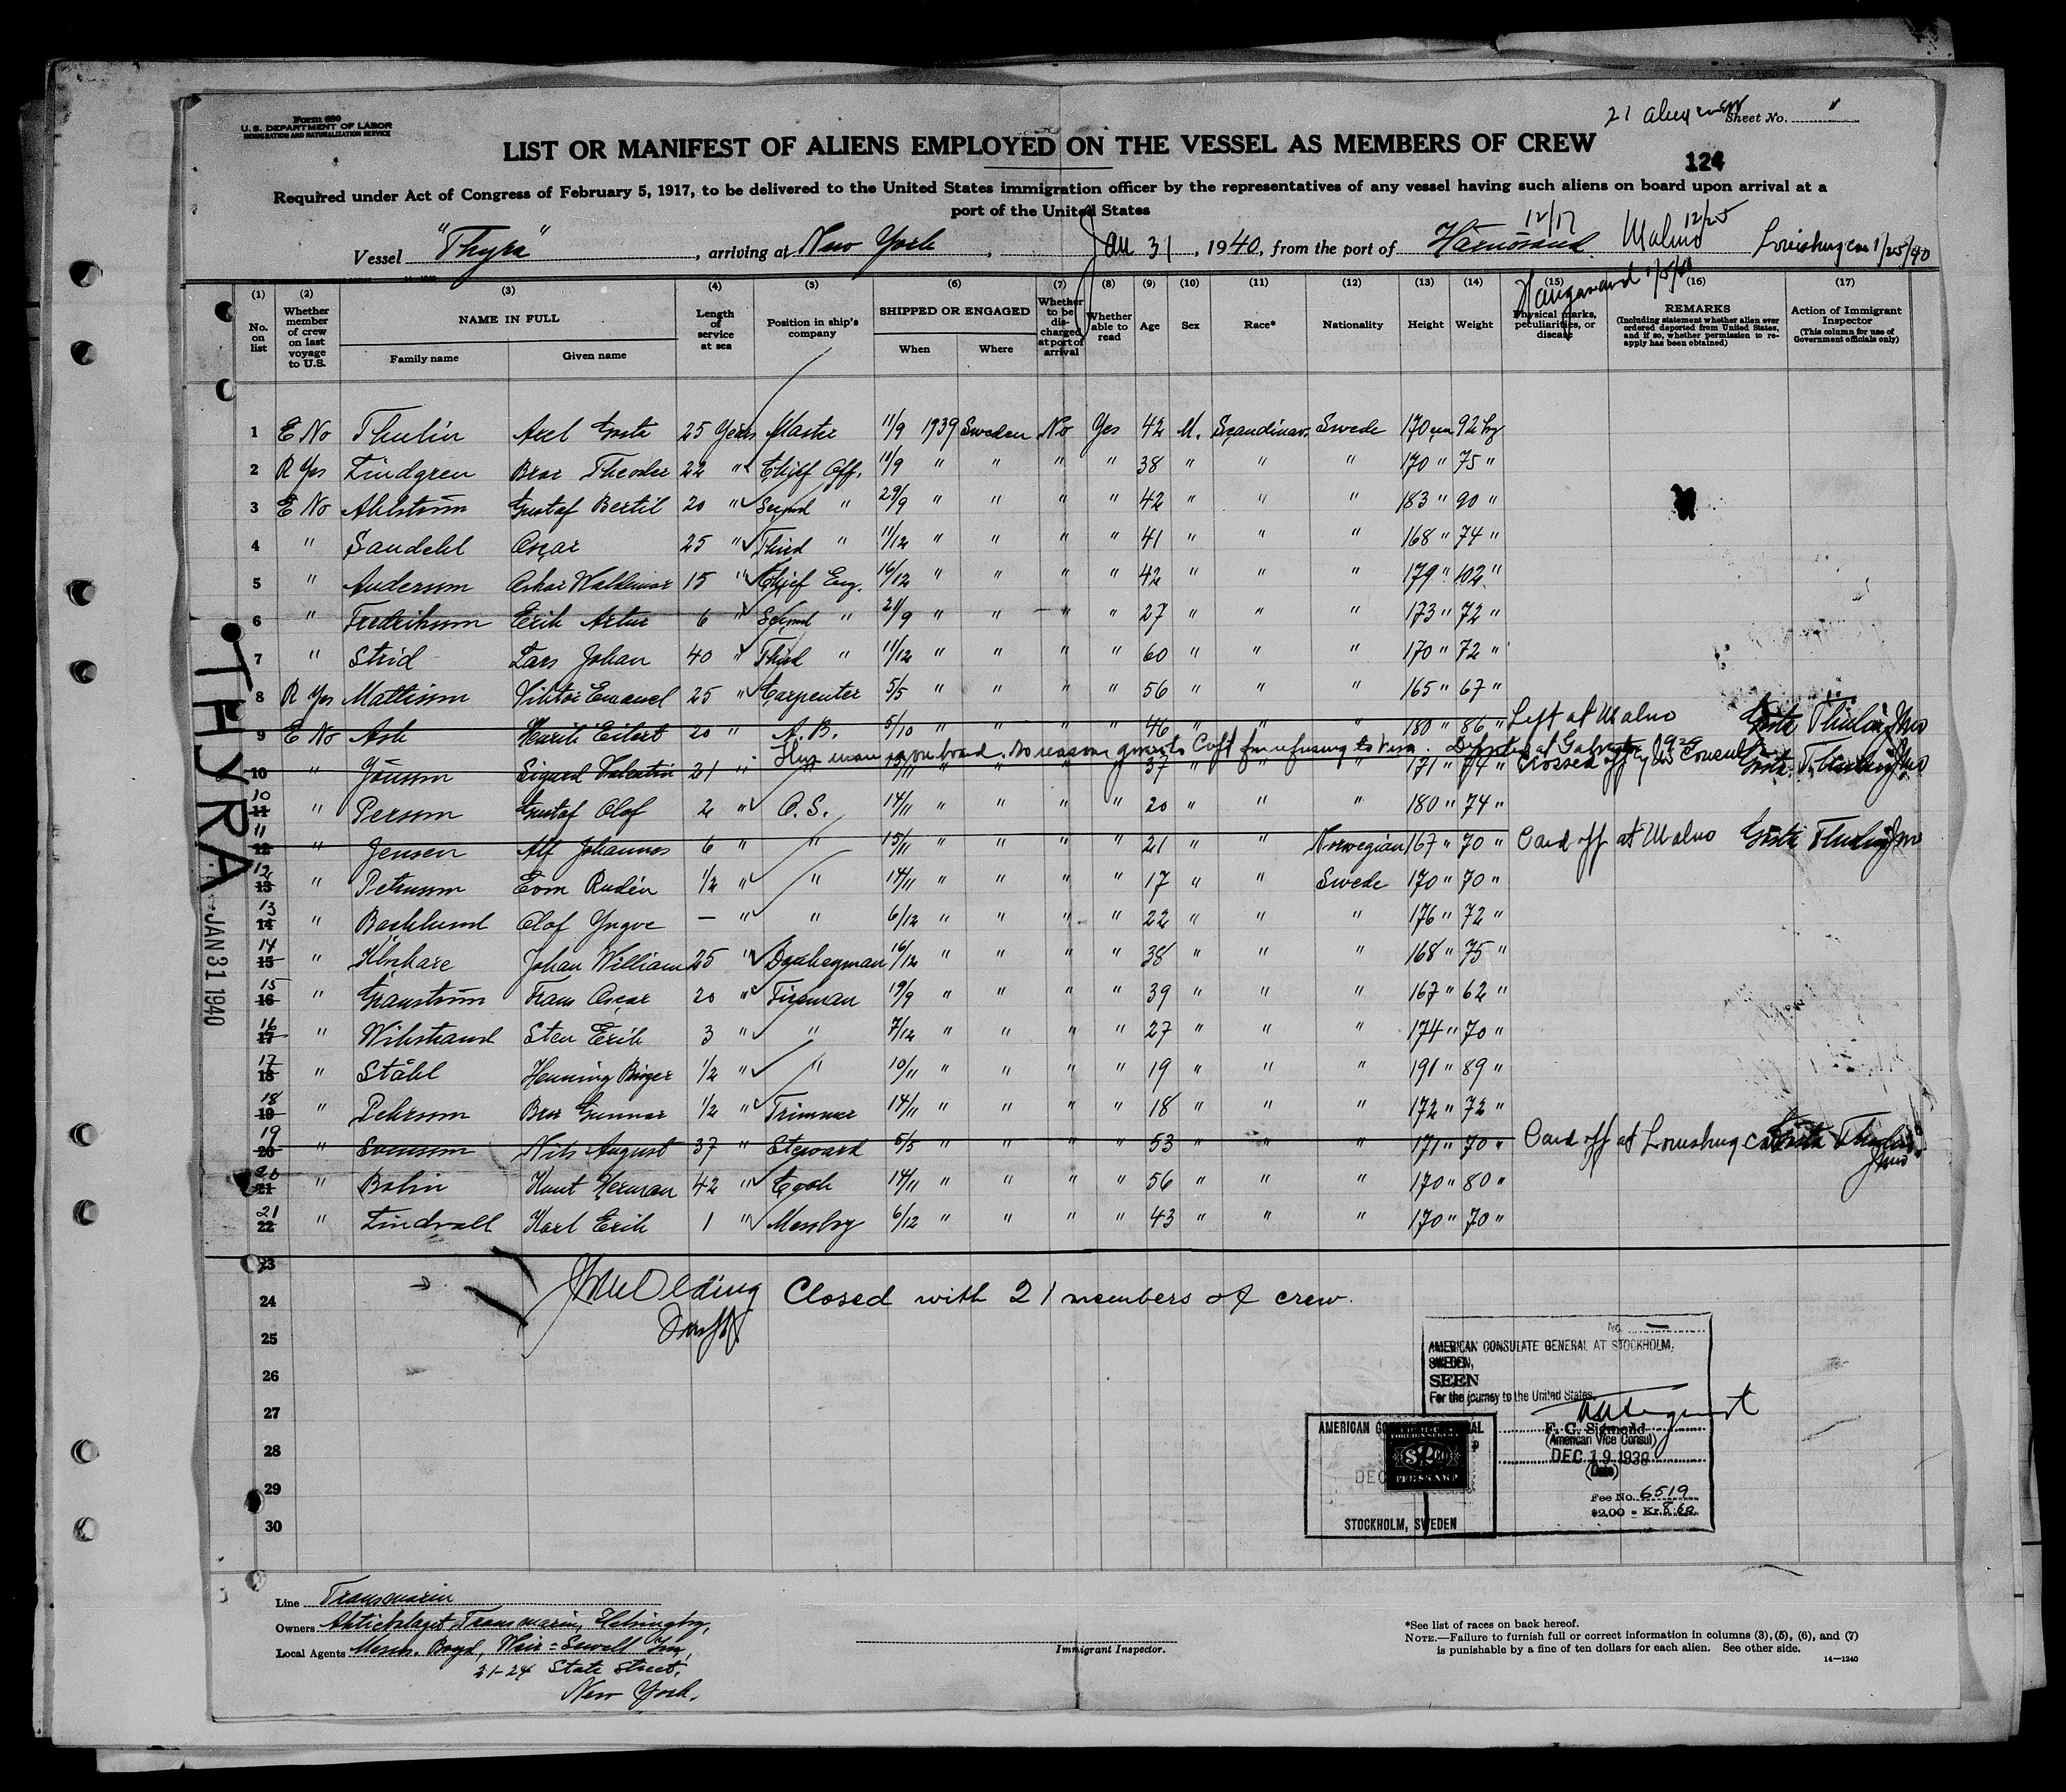 Form 680
U. S. DEPARTMENT OF LABOR
IMMIGRATION AND NATURALIZATION SERVICE
21 alien crew
Sheet No. "
LIST OR MANIFEST OF ALIENS EMPLOYED ON THE VESSEL AS MEMBERS OF CREW
124
Required under Act of Congress of February 5, 1917, to be delivered to the United States immigration officer by the representatives of any vessel having such aliens on board upon arrival at a
port of the United States
12/17 12/25
Vessel "Thyra", arriving at New York, Jan 31, 1940, from the port of Härnösand. Malmö Louisburg can 1/25/40
Haugesund 1/5/40
(1) (2) (3) (4) (5) (6) (7) (8) (9) (10) (11) (12) (13) (14) (15) (16) (17)
No. on list
Whether member of crew on last voyage to U.S.
NAME IN FULL
Family name
Given name
Length of service at sea
Position in ship's company
SHIPPED OR ENGAGED
When
Where
Whether to be discharged at port of arrival
Whether able to read
Age
Sex
Race*
Nationality
Height
Weight
Physical marks, peculiarities, or disease
REMARKS
(Including statement whether alien ever ordered deported from United States, and if so, whether permission to re-apply has been obtained)
Action of Immigrant Inspector
(This column for use of Government officials only)
1 E No Thulin Axel Gösta 25 Years Master 11/9 1939 Sweden No Yes 42 M. Scandinav. Swede 170 cm 92 kg
2 R Yes Lindgren Bror Theodor 22 " Chief Off. 11/9 " " " " 38 " " " 170 " 75 "
3 E No Ahlström Gustaf Bertil 20 " Second " 29/9 " " " " 42 " " " 183 " 90 "
4 " Sandehl Oscar 25 " Third " 11/12 " " " " 41 " " " 168 " 74 "
5 " Andersson Oskar Waldemar 15 " Chief Eng. 16/12 " " " " 42 " " " 179 " 102 "
6 " Fredriksson Erik Artur 6 " Second " 21/9 " " " " 27 " " " 173 " 72 "
7 " Strid Lars Johan 40 " Third " 11/12 " " " " 60 " " " 170 " 72 "
8 R Yes Mattisson Viktor Emanuel 25 " Carpenter 5/5 " " " " 56 " " " 165 " 67 "
9 E No Ask Henrik Eilert 20 " A.B. 5/10 " " " " 46 " " " 180 " 86 " Left at Malmö Gösta Thulin
This man is on board. No reason given to Capt for refusing to visa. Deported at Galveston 1929
10 " Jönsson Sigurd Valentin 21 " " " " " " 37 " " " 171 " 74 " Crossed off by US Consul Gösta Thulin
10 11 " Persson Gustaf Olof 2 " O.S. 14/11 " " " " 20 " " " 180 " 74 "
11 12 " Jensen Alf Johannes 6 " " 15/11 " " " " 21 " " Norwegian 167 " 70 " Paid off at Malmö Gösta Thulin
12 13 " Petersson Rudén 1/2 " " 14/11 " " " " 17 " " Swede 170 " 70 "
13 14 " Backlund Olof Yngve — " " 6/12 " " " " 22 " " " 176 " 72 "
14 15 " Johan William 25 " Donkeyman 16/12 " " " " 38 " " " 168 " 75 "
15 16 " Granström Frans Oscar 20 " Fireman 19/9 " " " " 39 " " " 167 " 62 "
16 17 " Wikstrand Sten Erik 3 " " 7/12 " " " " 27 " " " 174 " 70 "
17 18 " Ståhl Henning Birger 1/2 " " 10/11 " " " " 19 " " " 191 " 89 "
18 19 " Pehrsson Bror Gunnar 1/2 " Trimmer 14/11 " " " " 18 " " " 172 " 72 "
19 20 " Svensson Nils August 37 " Steward 5/5 " " " " 53 " " " 171 " 70 " Paid off at Louisburg Gösta Thulin
20 21 " Bolin Knut Herman 42 " Cook 14/11 " " " " 56 " " " 170 " 80 "
21 22 " Lindvall Karl Erik 1 " Messboy 6/12 " " " " 43 " " " 170 " 70 "
23
24 Closed with 21 members of crew.
25
26
27
28
29
30
THYRA
JAN 31 1940
No. —
AMERICAN CONSULATE GENERAL AT STOCKHOLM,
SWEDEN,
SEEN
For the journey to the United States
F. C. Sigmond
(American Vice Consul)
DEC 19 1939
(Date)
Fee No. 6519
$2.00 = Kr. 8.60
AMERICAN
DEC
STOCKHOLM, SWEDEN
Line Transmarin
Owners Aktiebolaget Transmarin, Helsingborg,
Local Agents Messrs. Boyd, Weir & Sewell Inc,
21-24 State Street,
New York.
Immigrant Inspector.
*See list of races on back hereof.
NOTE.—Failure to furnish full or correct information in columns (3), (5), (6), and (7)
is punishable by a fine of ten dollars for each alien. See other side.
14—1240